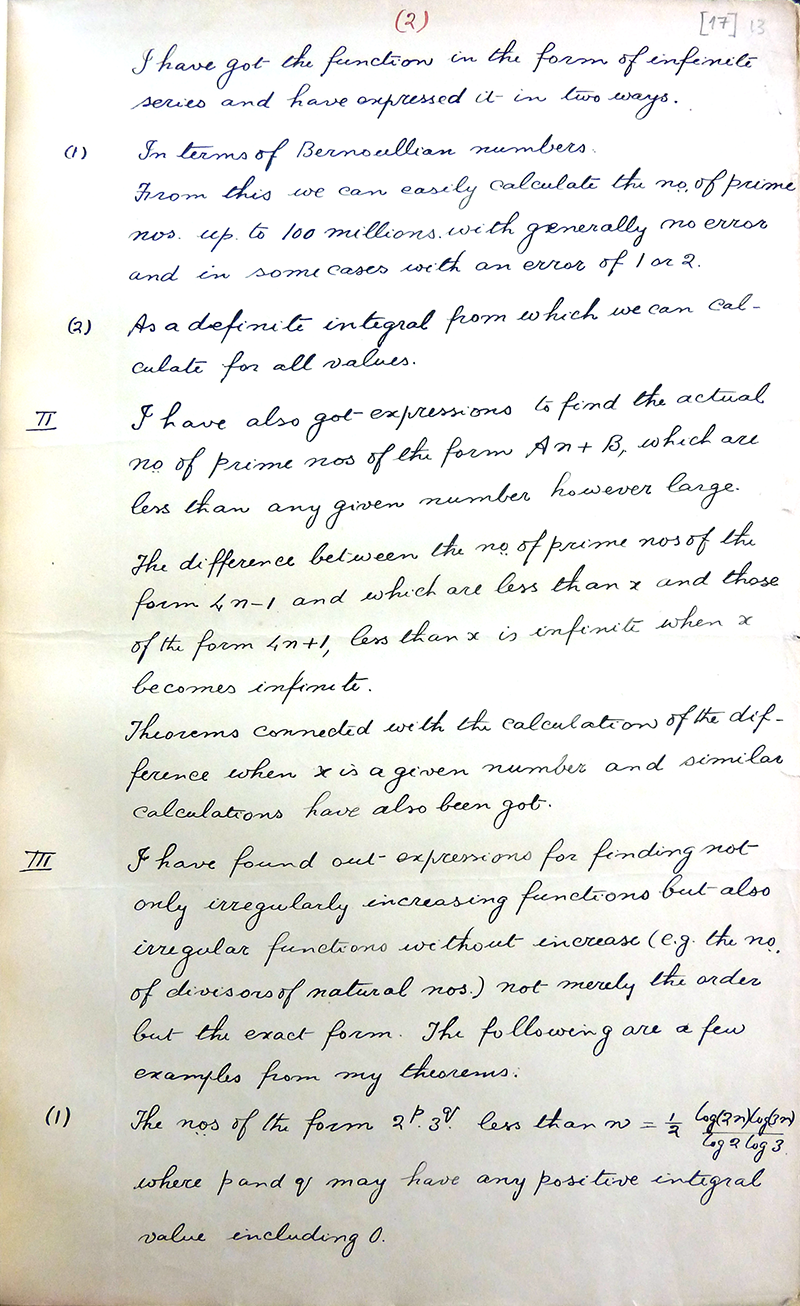 (2)
[17] 13
I have got the function in the form of infinite
series and have expressed it in two ways.
(1) In terms of Bernoullian numbers.
From this we can easily calculate the no. of prime
nos. up to 100 millions. with generally no error
and in some cases with an error of 1 or 2.
(2) As a definite integral from which we can cal-
culate for all values.
II I have also got expressions to find the actual
no. of prime nos of the form An + B, which are
less than any given number however large.
The difference between the no. of prime nos of the
form 4n-1 and which are less than x and those
of the form 4n+1, less than x is infinite when x
becomes infinite.
Theorems connected with the calculation of the dif-
ference when x is a given number and similar
calculations have also been got.
III I have found out expressions for finding not
only irregularly increasing functions but also
irregular functions without increase (e.g. the no.
of divisors of natural nos.) not merely the order
but the exact form. The following are a few
examples from my theorems:
(1) The nos of the form 2^p. 3^q. less than n = 1/2 log(2n)log(3n)/log 2 log 3.
where p and q may have any positive integral
value including 0.